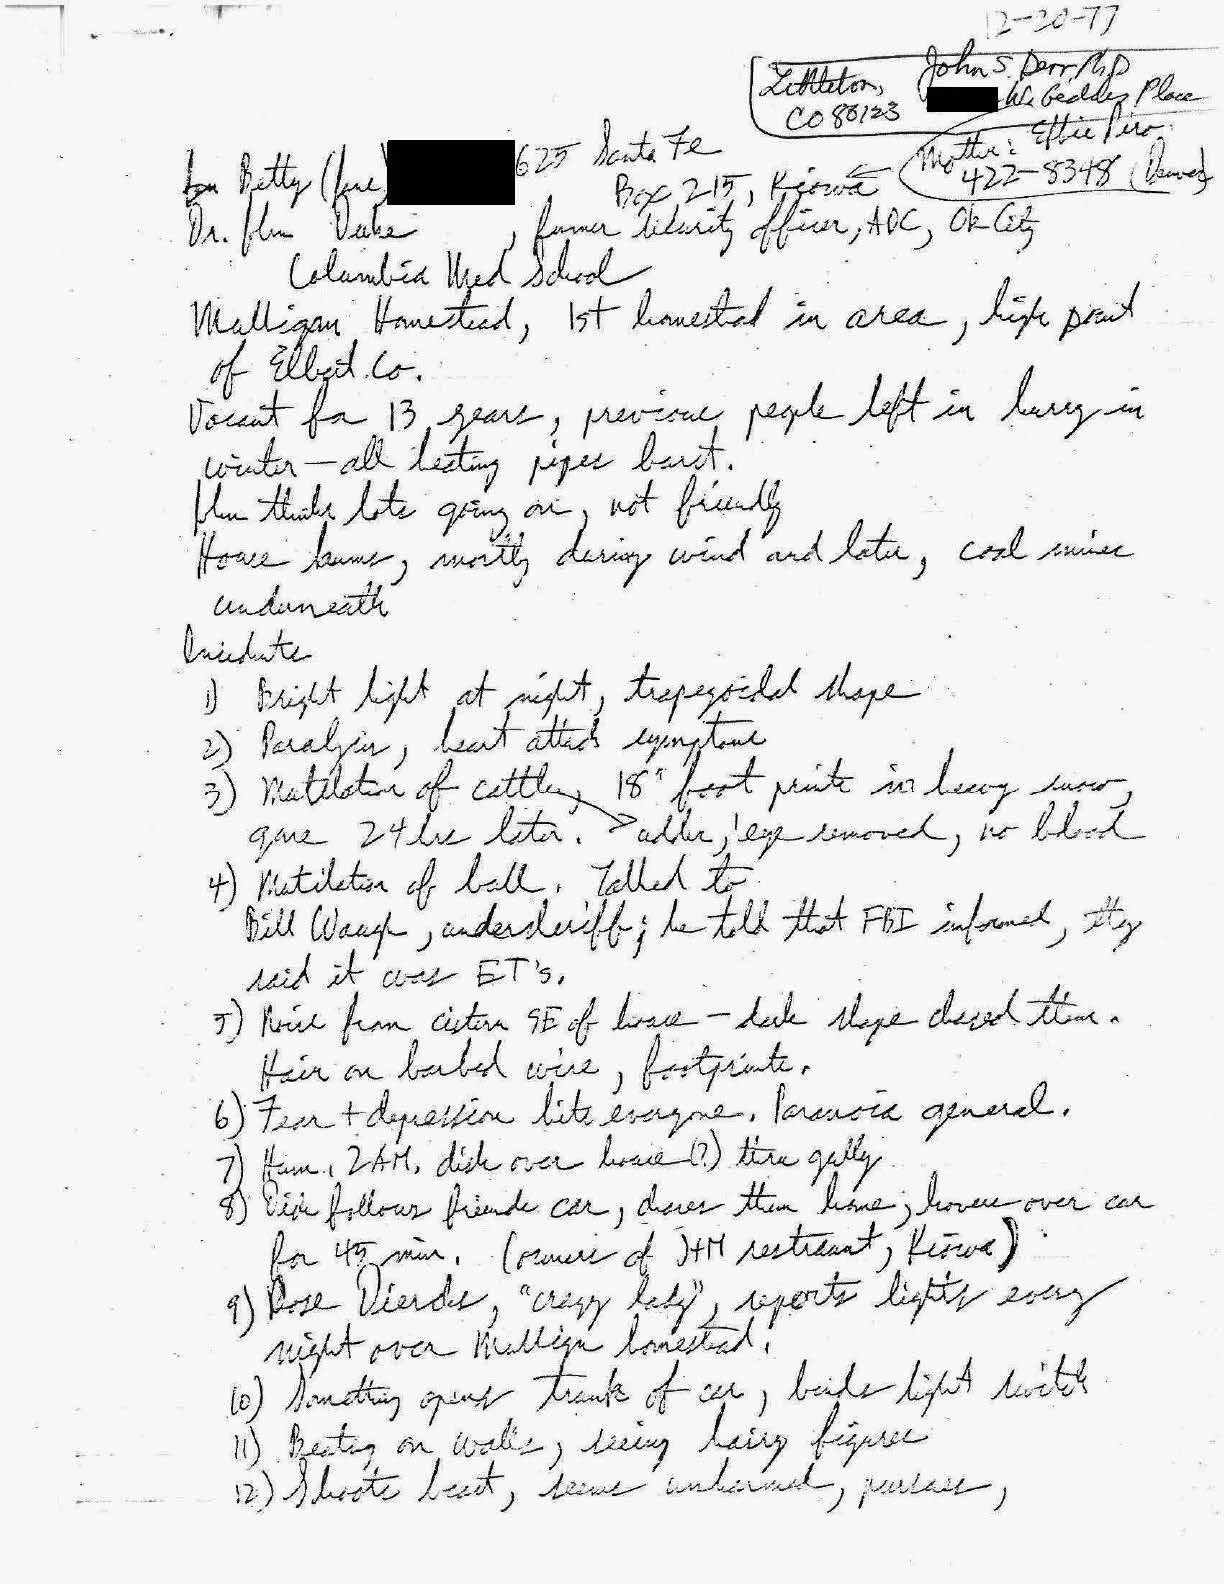 12-20-77
John S. Derr PhD
W. Geddes Place
Littleton,
CO 80123
Mother: Effie Piro
422-8348 (Denver)
Betty (Jane) 625 Santa Fe
Box 215, Kiowa
Dr. John Duke, former security officer, ADC, Ok City
Columbia Med School
Mulligan Homestead, 1st homestead in area, high point
of Elbert Co.
Vacant for 13 years, previous people left in hurry in
winter — all heating pipes burst.
John thinks lots going on, not friendly
House hums, mostly during wind and later, coal mines
underneath
Incidents
1) Bright light at night, trapezoidal shape
2) Paralysis, heart attack symptoms
3) Mutilation of cattle, 18" foot prints in heavy snow,
gone 24 hrs later. udder, 1 eye removed, no blood
4) Mutilation of bull. Talked to
Bill Waugh, undersheriff; he told that FBI informed, they
said it was ET's.
5) Noise from cistern SE of house — dark shape chased them.
Hair on barbed wire, footprints.
6) Fear + depression hits everyone. Paranoia general.
7) Hum, 2AM, disk over house (?) thru gully
8) Disk follows friends car, chases them home, hovers over car
for 45 min. (owners of J+M restraunt, Kiowa)
9) Rose Dierdis, "crazy lady", reports lights every
night over Mulligan homestead.
10) Something opens trunk of car, bends light switch
11) Beating on walls, seeing hairy figures
12) Shoots beast, seems unharmed, pursues,